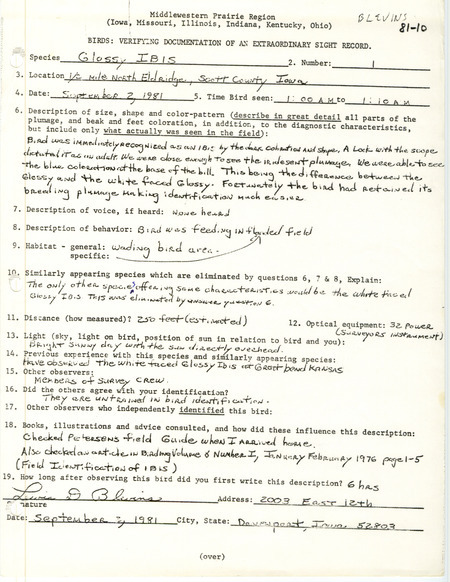 Middlewestern Prairie Region
(Iowa, Missouri, Illinois, Indiana, Kentucky, Ohio)
BLEVINS
81-10
BIRDS: VERIFYING DOCUMENTATION OF AN EXTRAORDINARY SIGHT RECORD.
Species Glossy IBIS 2. Number: 1
3. Location 1/2 mile North Eldridge, Scott County Iowa
4. Date: September 2, 1981 5. Time Bird seen: 1:00 AM to 1:10 AM
6. Description of size, shape and color-pattern (describe in great detail all parts of the
plumage, and beak and feet coloration, in addition, to the diagnostic characteristics,
but include only what actually was seen in the field):
Bird was immediately recognized as an IBIS by the dark coloration and shape. A Look with the scope
it as an adult. We were close enough to see the plumage. We were able to see
the coloration at the base of the bill. This being the difference between the
Glossy and the white faced Glossy. Fortunately the bird had retained its
breeding plumage making identification much easier
7. Description of voice, if heard: None heard
8. Description of behavior: Bird was feeding in flooded field
9. Habitat - general: wading bird area.
specific:
10. Similarly appearing species which are eliminated by questions 6, 7 & 8, Explain:
The only other specie offering same characteristics would be the white faced
Glossy Ibis. This was eliminated by answer question 6.
11. Distance (how measured)? 250 feet (estimated) 12. Optical equipment: 32 Power
(Surveyors instrument)
13. Light (sky, light on bird, position of sun in relation to bird and you):
Bright sunny day with the sun directly overhead.
14. Previous experience with this species and similarly appearing species:
Have observed the white faced Glossy Ibis at Great bend Kansas
15. Other observers:
Members of survey crew.
16. Did the others agree with your identification?
They are untrained in bird identification.
17. Other observers who independently identified this bird:
18. Books, illustrations and advice consulted, and how did these influence this description:
Checked Petersens Field Guide when I arrived home.
Also checked an article in Birding Volume 8 Number I, January February 1976 page 1-5
(Field Identification of IBIS)
19. How long after observing this bird did you first write this description? 6 hrs
Blevins Address: 2003 East 12th
nature
Date: September 7, 1981 City, State: Davenport, Iowa 52803
(over)